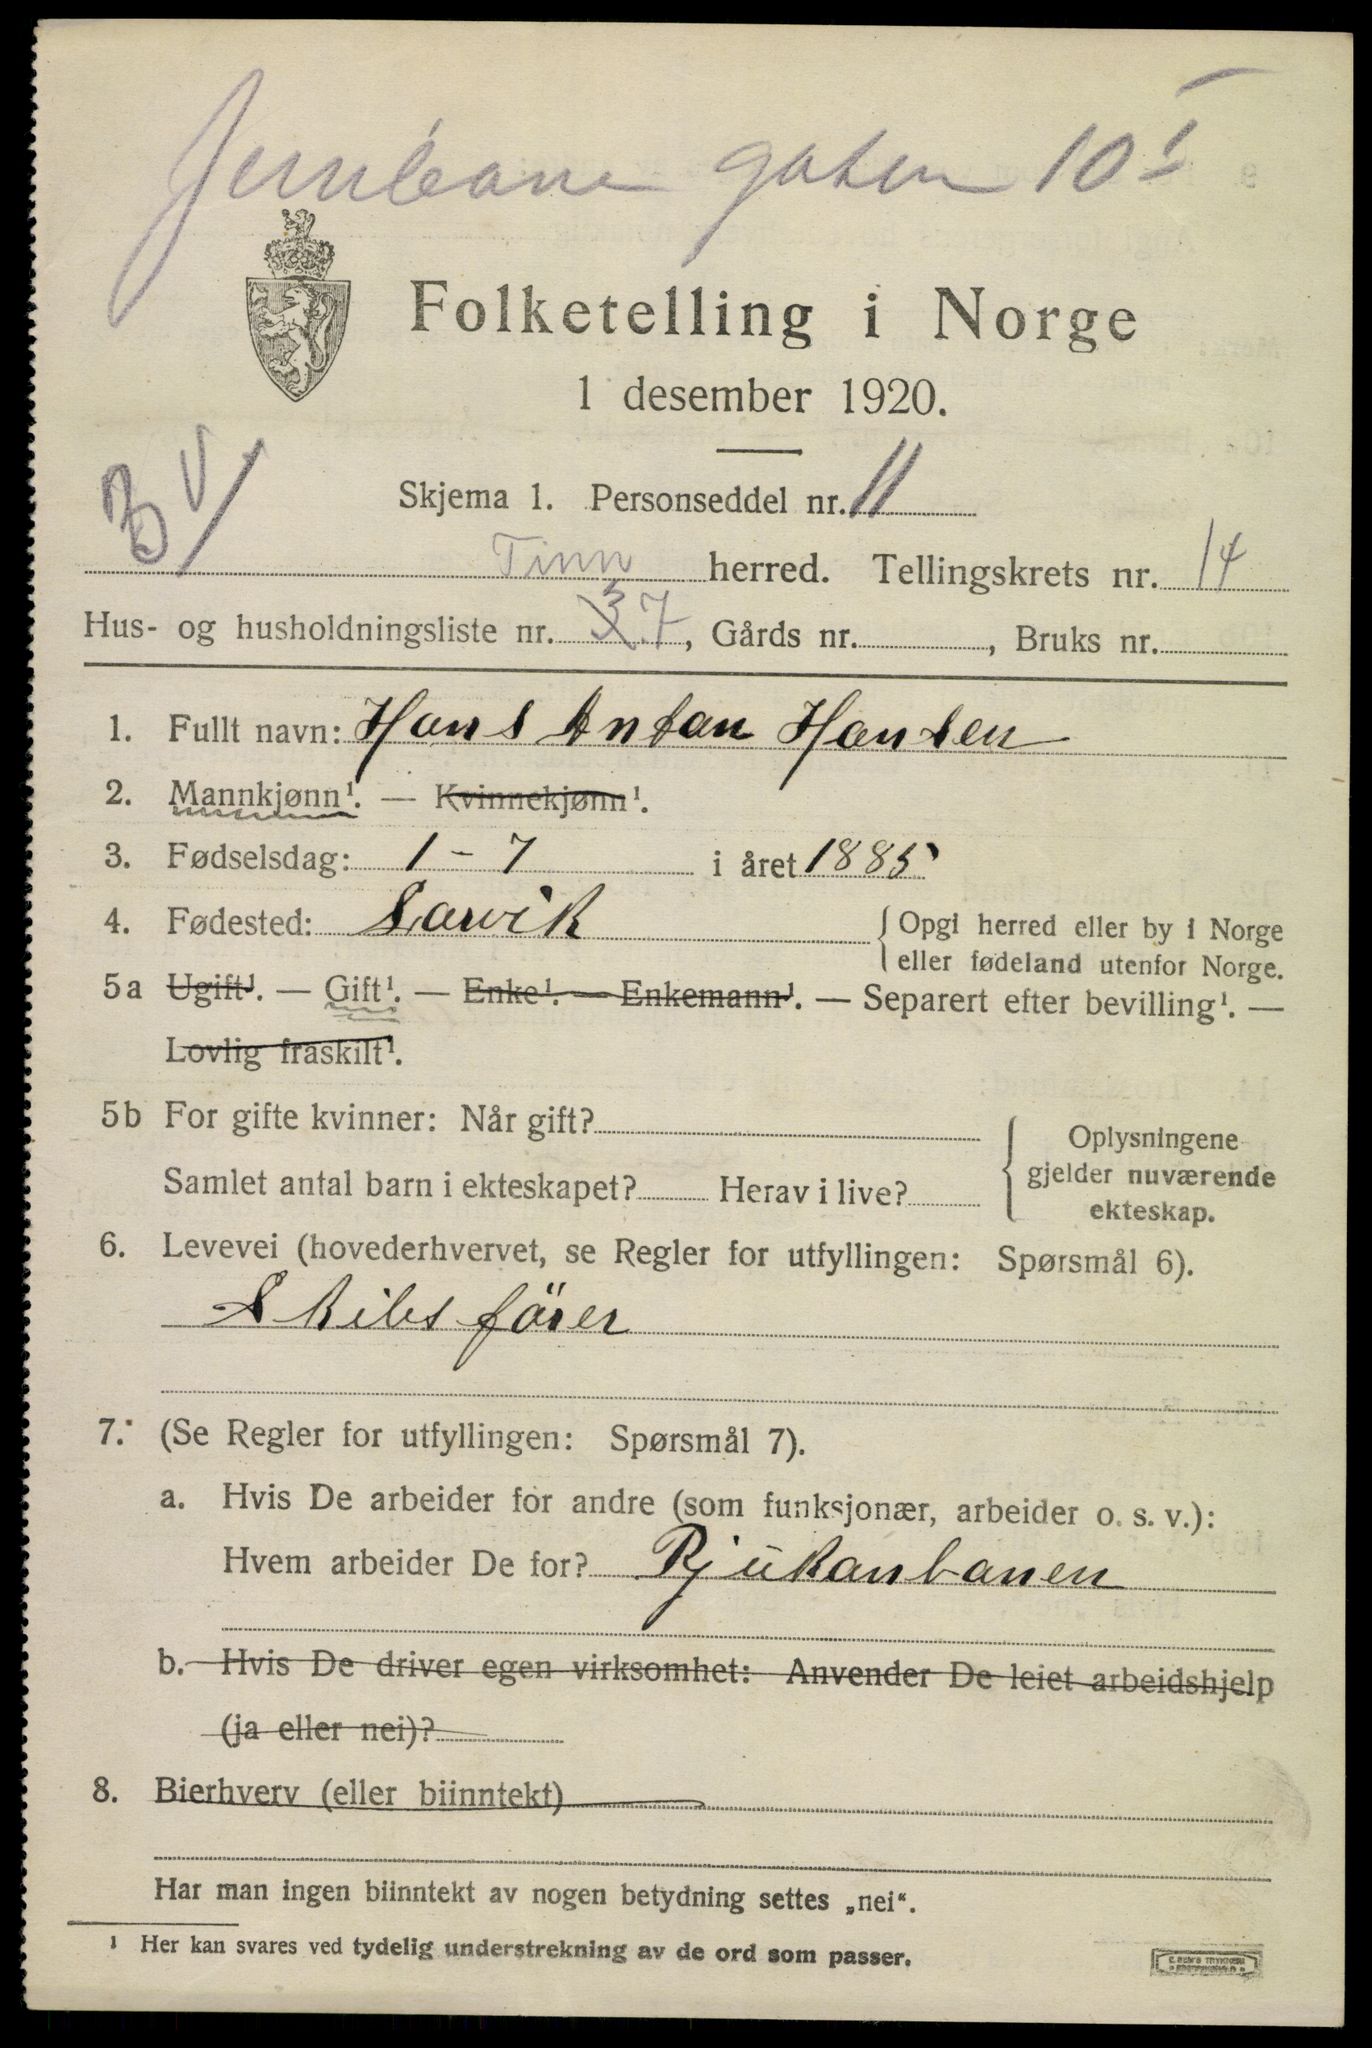 Jernbane gaten 10 I
Folketelling i Norge
1 desember 1920.
BV
Skjema 1. Personseddel nr. 11
Tinn herred. Tellingskrets nr. 14
Hus- og husholdningsliste nr. 37, Gårds nr. , Bruks nr.
1. Fullt navn: Hans Anton Hansen
2. Mannkjønn¹. — Kvinnekjønn¹.
3. Fødselsdag: 1 - 7 i året 1885
4. Fødested: Larvik { Opgi herred eller by i Norge
eller fødeland utenfor Norge.
5a Ugift¹. — Gift¹. — Enke¹. — Enkemann¹. — Separert efter bevilling¹. —
Lovlig fraskilt¹.
5b For gifte kvinner: Når gift?
Samlet antal barn i ekteskapet? Herav i live?
Oplysningene
gjelder nuværende
ekteskap.
6. Levevei (hovederhvervet, se Regler for utfyllingen: Spørsmål 6).
Skibsförer
7. (Se Regler for utfyllingen: Spørsmål 7).
a. Hvis De arbeider for andre (som funksjonær, arbeider o. s. v.):
Hvem arbeider De for? Rjukanbanen
b. Hvis De driver egen virksomhet: Anvender De leiet arbeidshjelp
(ja eller nei)?
8. Bierhverv (eller biinntekt)
Har man ingen biinntekt av nogen betydning settes „nei“.
¹ Her kan svares ved tydelig understrekning av de ord som passer.